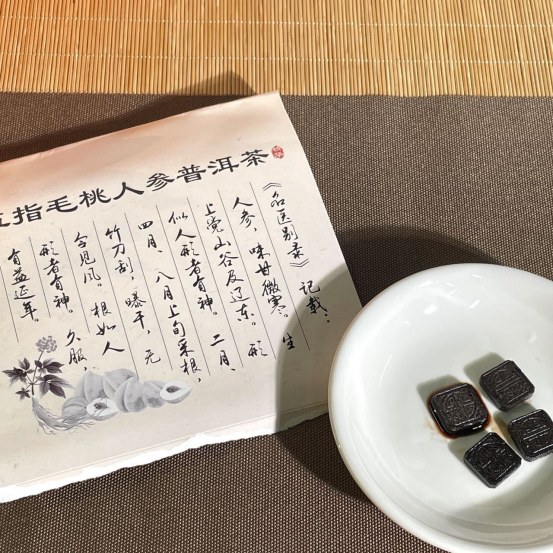 五指毛桃人参普洱茶
《名医别录》记载：
人参，味甘微寒。生
上党山谷及辽东。形
似人形者有神。二月、
四月、八月上旬采根，
竹刀刮，曝干，无
令见风。根如人
形者有神。久服，
有益延年。